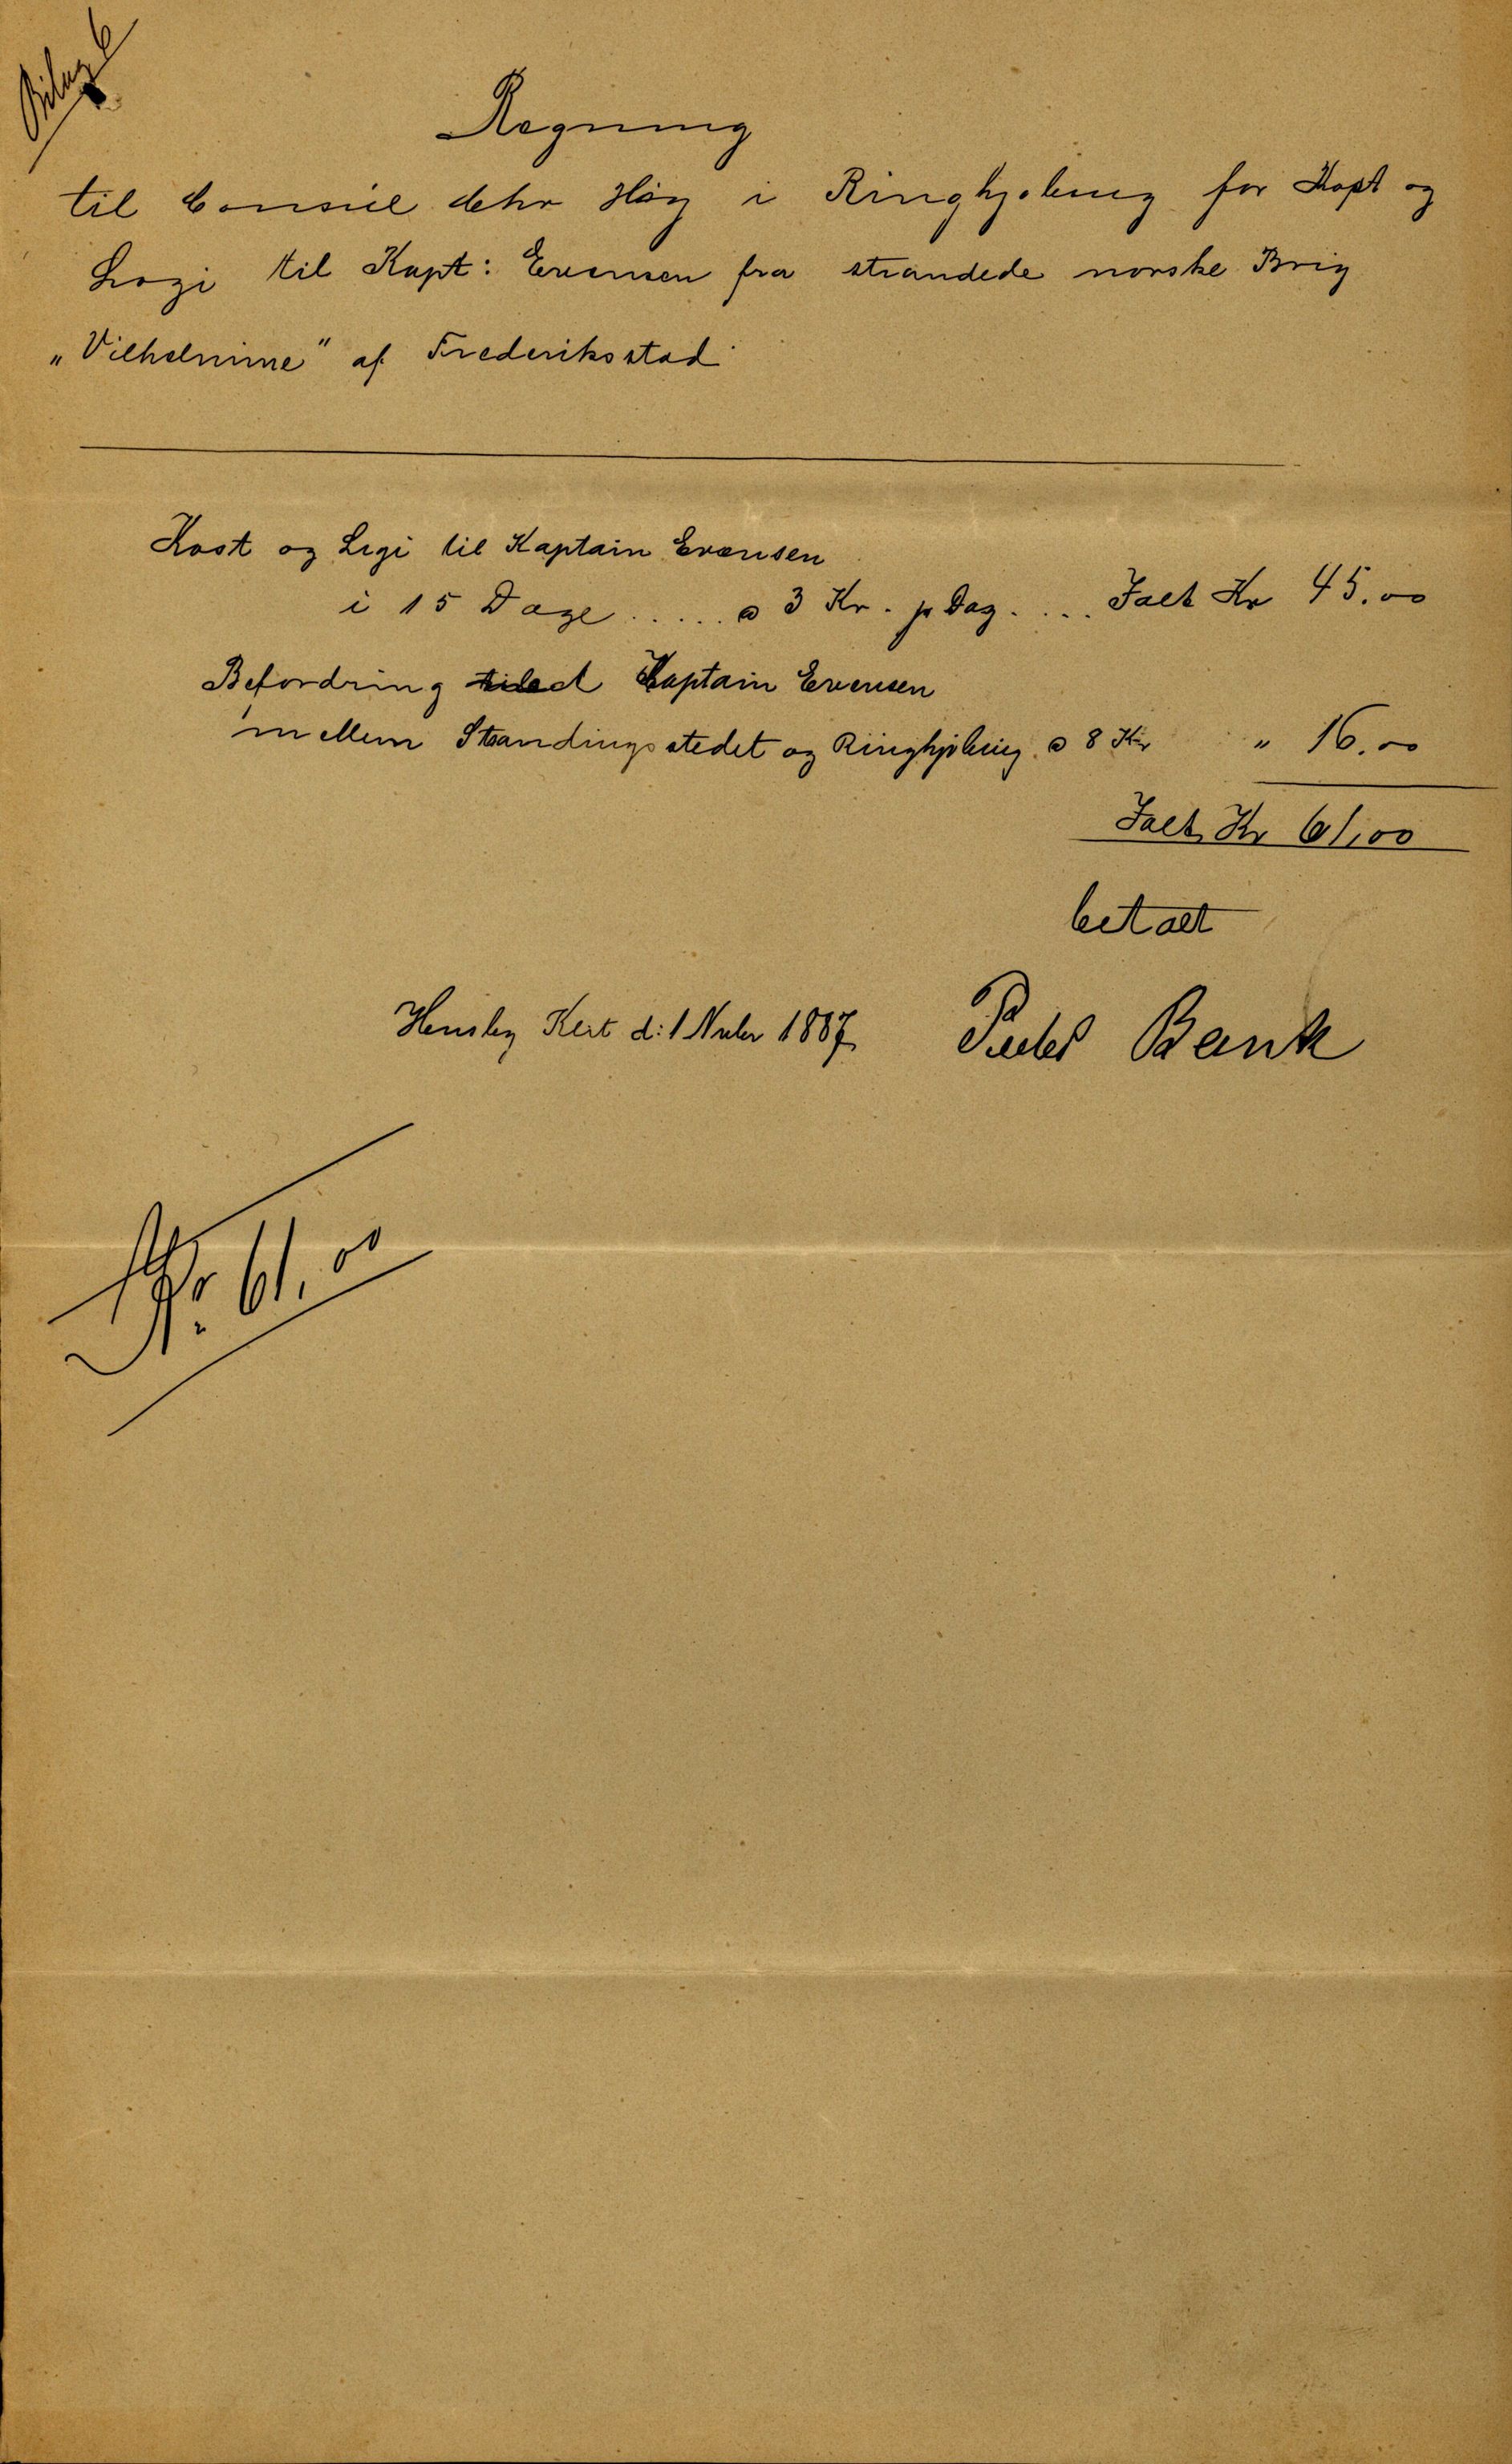 Bilag 6
Regning
til Consul Høy i Ringkjøbing for Kost og
Logi til Kapt: Evensen fra strandede norske Brig
„Vilhelmine" af Frederiksstad
Kost og Logi til Kaptain Evensen
i 15 Dage ..... a 3 Kr. pr Dag .... Ialt Kr 45.00
Befordring Kaptain Evensen
mellem Strandingsstedet og Ringkjøbing a 8 Kr " 16.00
Ialt Kr 61,00
betalt
Klit d: 1 Novbr 1887 Peder Bank
Kr. 61,00